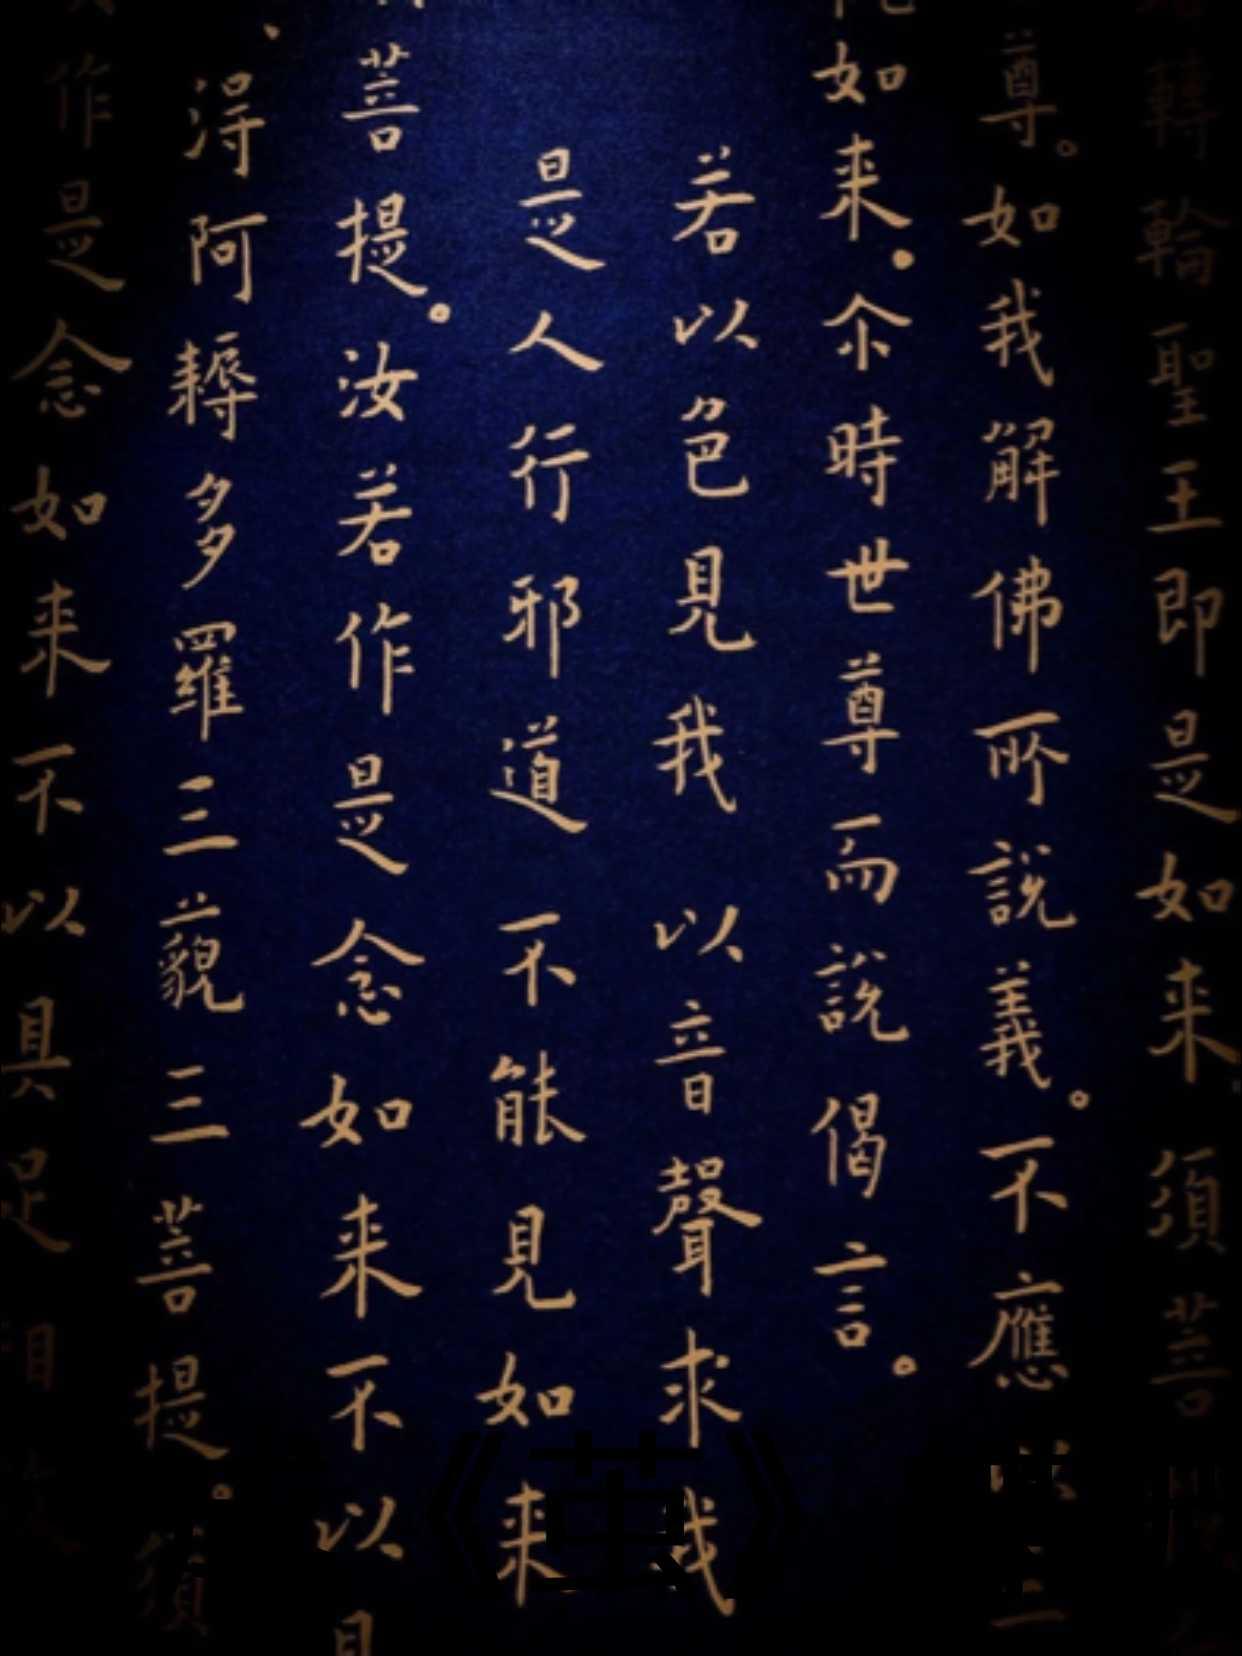 轉輪聖王即是如來須菩
尊。如我解佛所說義。不應以三
如来。尒時世尊而說偈言。
若以色見我以音聲求我
是人行邪道不能見如来
菩提。汝若作是念如来不以具
、淂阿耨多羅三藐三菩提。須
作是念如来不以具足相故
《茧》